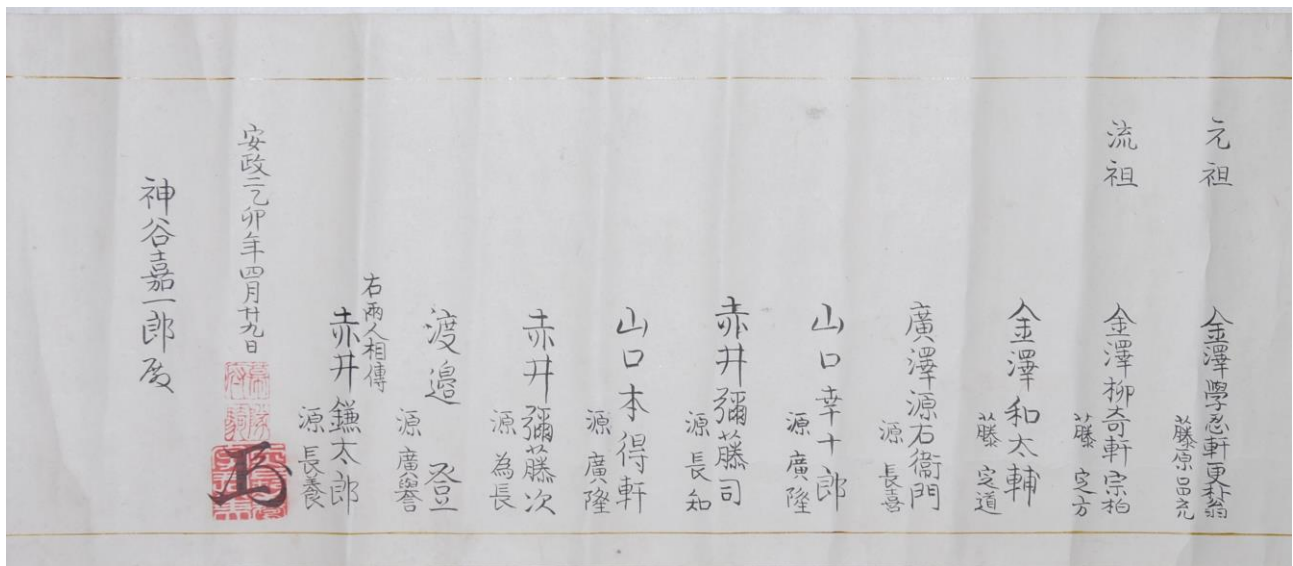 元祖 金澤學思軒更翁
藤原昌充
流祖 金澤柳奇軒宗柏
藤 定方
金澤和太輔
藤 定道
廣澤源右衞門
源 長喜
山口幸十郎
源 廣隆
赤井彌藤司
源 長知
山口本得軒
源 廣隆
赤井彌藤次
源 為長
渡邉 登
源 廣譽
右兩人相傳
赤井鎌太郎
源 長養
安政二乙卯年四月廿九日
神谷嘉一郎殿